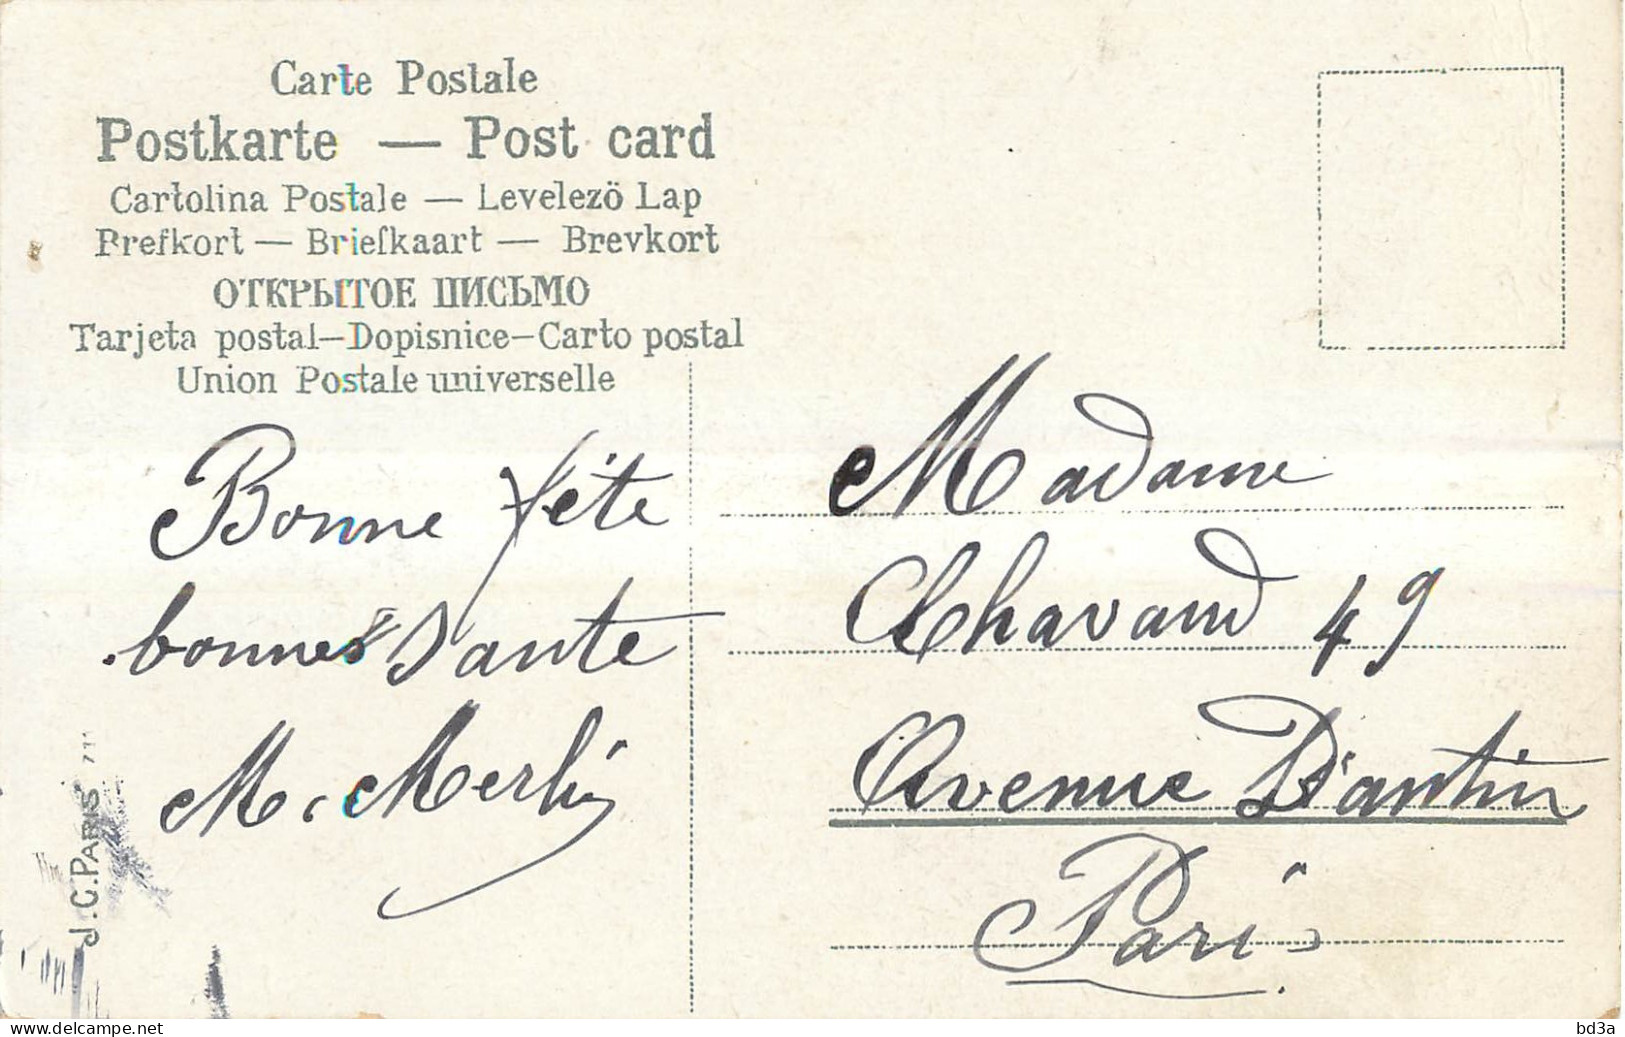 Carte Postale
Postkarte — Post card
Cartolina Postale — Levelezö Lap
Brefkort — Briefkaart — Brevkort
ОТКРЫТОЕ ПИСЬМО
Tarjeta postal—Dopisnice—Carto postal
Union Postale universelle
Bonne fête
bonnes Sante
M. Merlin
Madame
Chavaud 49
Avenue D'antin
Paris
J.C. PARIS
delcampe.net
bd3a